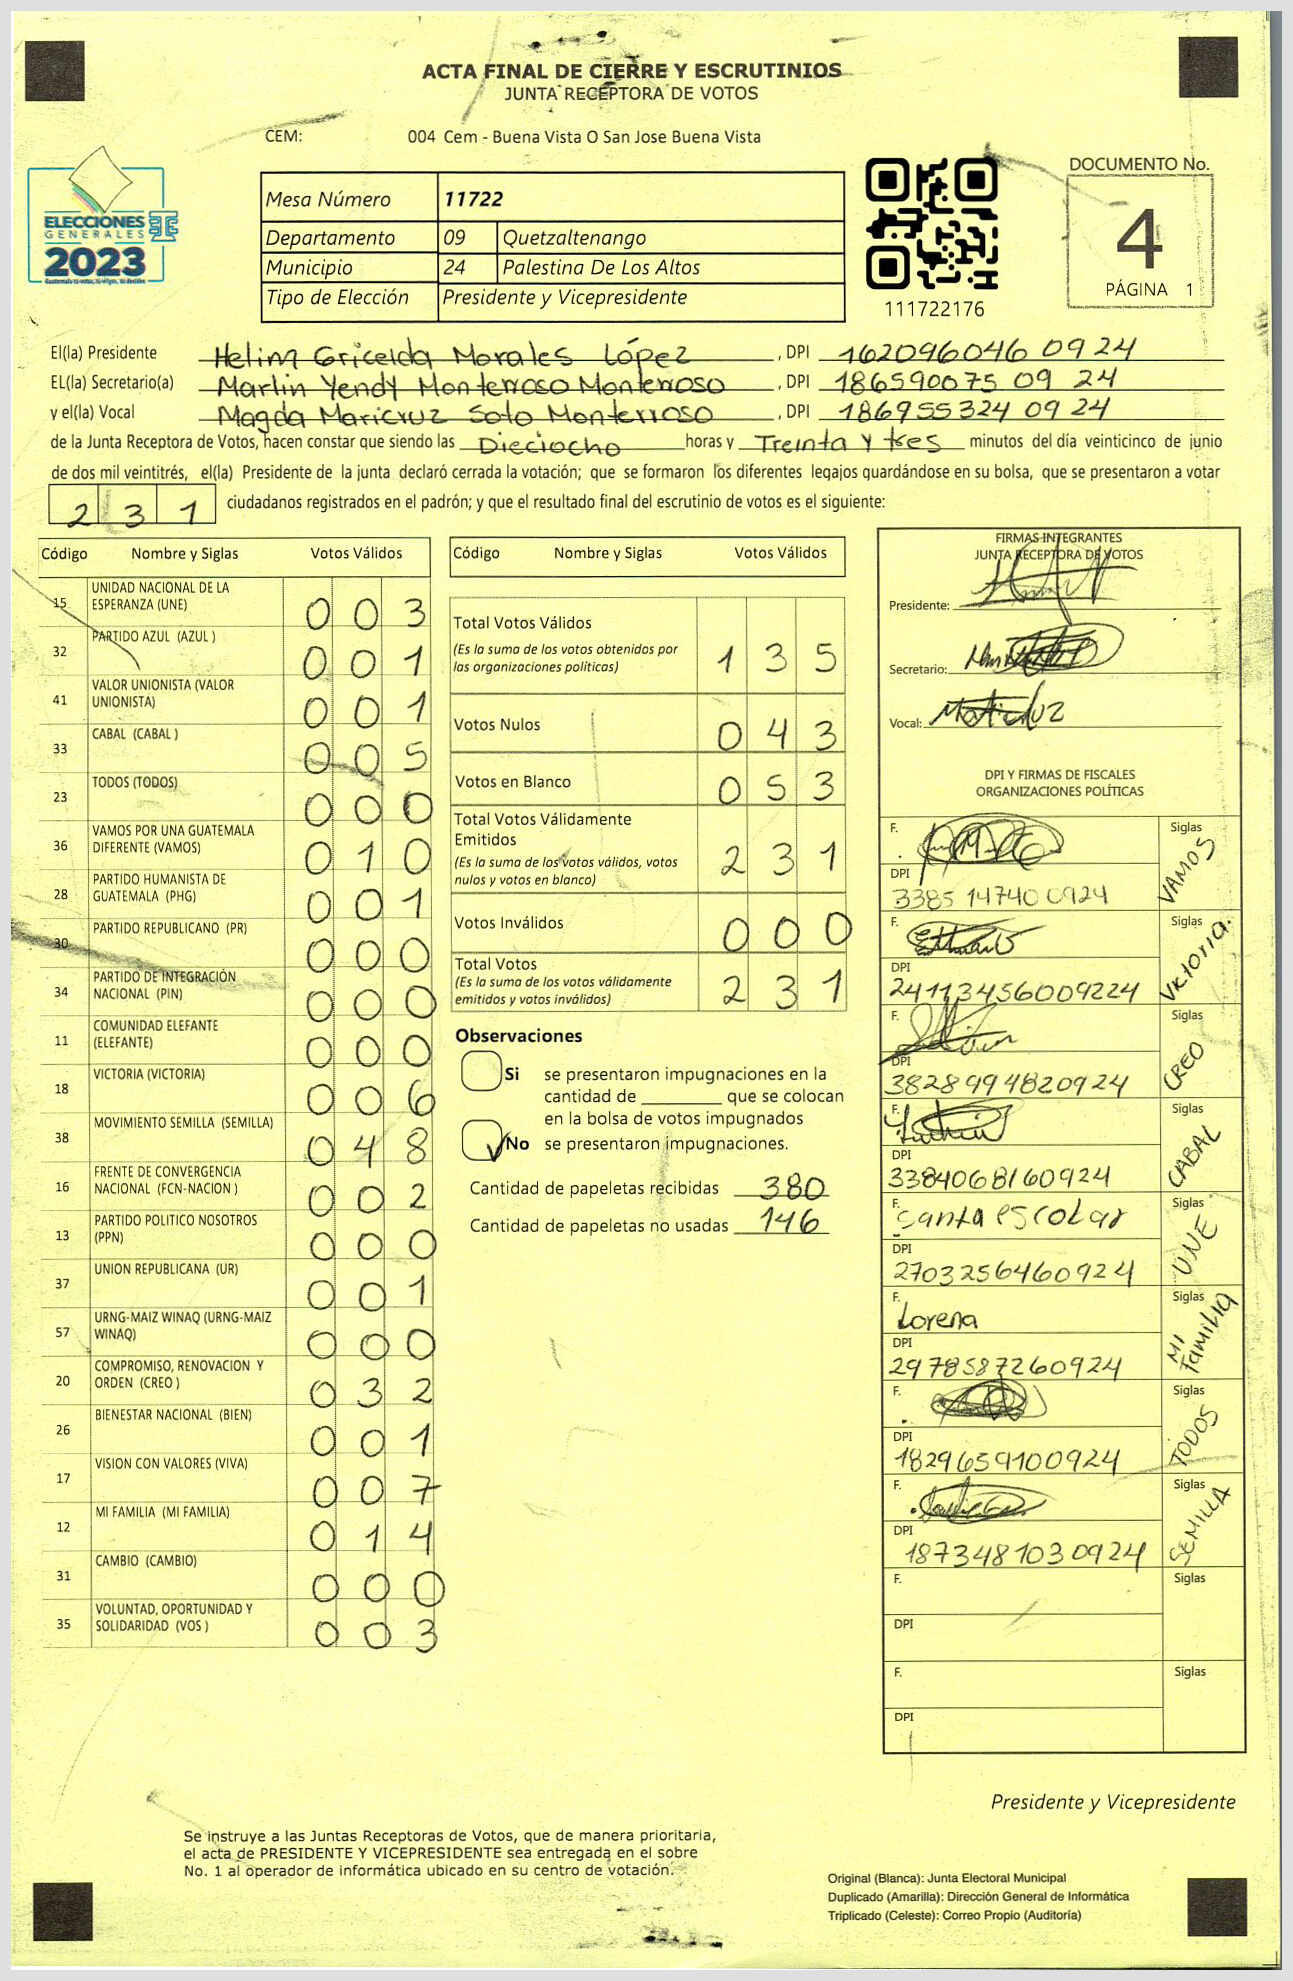 ACTA FINAL DE CIERRE Y ESCRUTINIOS
JUNTA RECEPTORA DE VOTOS
CEM: 004 Cem - Buena Vista O San Jose Buena Vista
ELECCIONES
GENERALES
2023
Mesa Número 11722
Departamento 09 Quetzaltenango
Municipio 24 Palestina De Los Altos
Tipo de Elección Presidente y Vicepresidente
111722176
DOCUMENTO No.
4
PÁGINA 1
El(la) Presidente Helim Gricelda Morales López, DPI 162096046 0924
EL(la) Secretario(a) Marlin Yendy Monterroso Monterroso, DPI 186590075 09 24
y el(la) Vocal Magda Maricruz Soto Monterroso, DPI 186955324 09 24
de la Junta Receptora de Votos, hacen constar que siendo las Dieciocho horas y Treinta y tres minutos del día veinticinco de junio
de dos mil veintitrés, el(la) Presidente de la junta declaró cerrada la votación; que se formaron los diferentes legajos guardándose en su bolsa, que se presentaron a votar
231 ciudadanos registrados en el padrón; y que el resultado final del escrutinio de votos es el siguiente:
Código Nombre y Siglas Votos Válidos
15 UNIDAD NACIONAL DE LA
ESPERANZA (UNE) 003
32 PARTIDO AZUL (AZUL ) 001
41 VALOR UNIONISTA (VALOR
UNIONISTA) 001
33 CABAL (CABAL ) 005
23 TODOS (TODOS) 000
36 VAMOS POR UNA GUATEMALA
DIFERENTE (VAMOS) 010
28 PARTIDO HUMANISTA DE
GUATEMALA (PHG) 001
30 PARTIDO REPUBLICANO (PR) 000
34 PARTIDO DE INTEGRACIÓN
NACIONAL (PIN) 000
11 COMUNIDAD ELEFANTE
(ELEFANTE) 000
18 VICTORIA (VICTORIA) 006
38 MOVIMIENTO SEMILLA (SEMILLA) 048
16 FRENTE DE CONVERGENCIA
NACIONAL (FCN-NACION ) 002
13 PARTIDO POLITICO NOSOTROS
(PPN) 000
37 UNION REPUBLICANA (UR) 001
57 URNG-MAIZ WINAQ (URNG-MAIZ
WINAQ) 000
20 COMPROMISO, RENOVACION Y
ORDEN (CREO ) 032
26 BIENESTAR NACIONAL (BIEN) 001
17 VISION CON VALORES (VIVA) 007
12 MI FAMILIA (MI FAMILIA) 014
31 CAMBIO (CAMBIO) 000
35 VOLUNTAD, OPORTUNIDAD Y
SOLIDARIDAD (VOS ) 003
Código Nombre y Siglas Votos Válidos
Total Votos Válidos
(Es la suma de los votos obtenidos por
las organizaciones políticas) 135
Votos Nulos 043
Votos en Blanco 053
Total Votos Válidamente
Emitidos
(Es la suma de los votos válidos, votos
nulos y votos en blanco) 231
Votos Inválidos 000
Total Votos
(Es la suma de los votos válidamente
emitidos y votos inválidos) 231
Observaciones
Si se presentaron impugnaciones en la
cantidad de ________ que se colocan
en la bolsa de votos impugnados
No se presentaron impugnaciones.
Cantidad de papeletas recibidas 380
Cantidad de papeletas no usadas 146
FIRMAS INTEGRANTES
JUNTA RECEPTORA DE VOTOS
Presidente:
Secretario:
Vocal: Maricruz
DPI Y FIRMAS DE FISCALES
ORGANIZACIONES POLÍTICAS
F. Siglas VAMOS
DPI
3385 14740 0924
F. Siglas Victoria.
DPI
24113456009224
F. Siglas CREO
DPI
3828994820924
F. Siglas CABAL
DPI
3384068160924
F. Santa escobar Siglas UNE
DPI
2703256460924
F. Lorena Siglas MI Familia
DPI
2978587260924
F. Siglas TODOS
DPI
1829659100924
F. Siglas SEMILLA
DPI
1873481030924
F. Siglas
DPI
F. Siglas
DPI
Presidente y Vicepresidente
Se instruye a las Juntas Receptoras de Votos, que de manera prioritaria,
el acta de PRESIDENTE Y VICEPRESIDENTE sea entregada en el sobre
No. 1 al operador de informática ubicado en su centro de votación.
Original (Blanca): Junta Electoral Municipal
Duplicado (Amarilla): Dirección General de Informática
Triplicado (Celeste): Correo Propio (Auditoría)